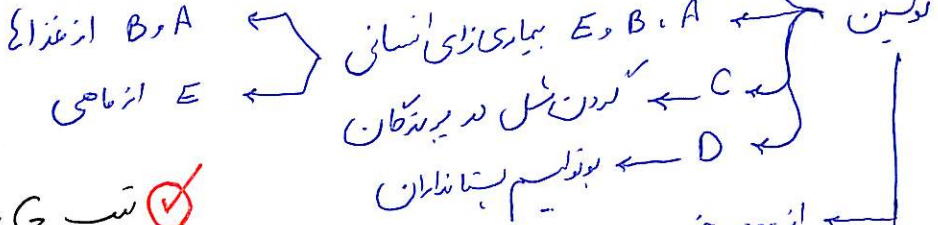 توکسین ← A، B و E بیماری‌زای انسانی ← A و B از غذاها
← E از ماهی
← C ← گردن شل در پرندگان
← D ← بوتولیسم پستانداران
تیپ G
← از